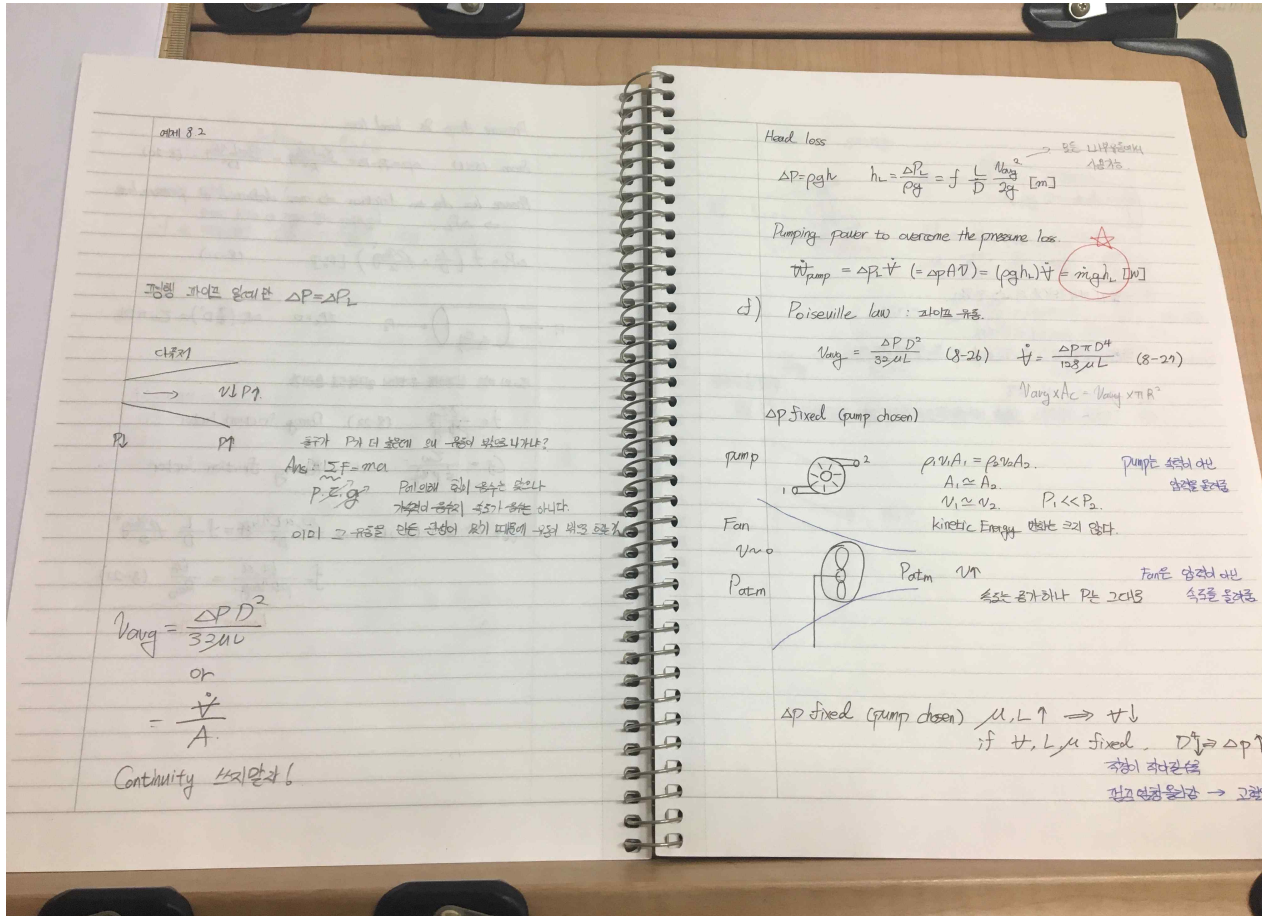 예제 8 2
평행 파이프 일때만 △P=△P_L
→ V↓ P↑.
P↓ P↑
출구가 P가 더 높은데 왜 유동이 밖으로 나가냐?
Ans. ΣF=ma
P에의해 힘이 음수는 맞으나
가속력이 음수지 속도가 음수는 아니다.
이미 그 유동을 만든 관성이 있기 때문에 유동이 밖으로
Vavg = △P D² / 32μL
or
= V̇ / A.
Continuity 쓰지말라!
Head loss
→ 모든 내부유동에서 사용가능.
△P=ρgh h_L = △P_L / ρg = f L/D Vavg²/2g [m]
Pumping power to overcome the pressure loss. ☆
Ẇpump = △P_L V̇ (=△pAV) = (ρgh_L)V̇ = ṁgh_L [W]
d) Poiseville law : 파이프 유동.
Vavg = △P D² / 32μL (8-26) V̇ = △P π D⁴ / 128μL (8-27)
Vavg×Ac = Vavg × πR²
△P fixed (pump chosen)
pump 1 2 ρ₁V₁A₁ = ρ₂V₂A₂.
A₁ ≃ A₂
V₁ ≃ V₂. P₁ << P₂.
kinetic Energy 변화는 크지 않다.
pump는 속력이 아닌
압력을 올려줌
Fan
V~0
Patm Patm V↑
속도는 증가하나 P는 그대로
Fan은 압력이 아닌
속도를 올려줌
△P fixed (pump chosen) μ, L ↑ ⟹ V̇↓
if V̇, L, μ fixed. D⁴↓ ⇒ △P ↑
직경이 작아질수록